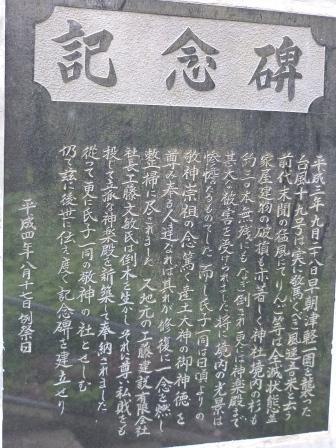 記念碑
平成三年九月二十八日早朝津軽一円を襲った
台風十九号は実に驚くべき風速五三米と云う
前代未聞の猛風をもてりんご等は全滅状態
家屋建物の破損も亦著しく神社境内の杉も
約三〇本無残にもなぎ倒され更には神楽殿まで
甚大な被害を受けられました将に境内の光景は
惨憺たるものでした而し氏子一同は日頃よりの
敬神崇祖の念篤く産土大神の御神徳を
尊み奉る人達なれば其れが修復に一念を燃し
整掃に尽されました又地元の工藤建設有限会社
社長工藤文敏氏は倒木を生かしそれに尊い私財をも
投じて立派な神楽殿を新築して奉納されました
従って更に氏子一同の敬神の社としむ
仍て茲に後世に伝え度く記念碑を建立せり
平成四年八月十七日例祭日